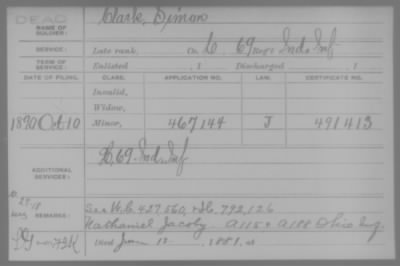 DEAD
NAME OF SOLDIER: Clark, Simon
SERVICE: Late rank, Co. L, 69 Reg't Ind. Inf
TERM OF SERVICE: Enlisted , 1 Discharged , 1
DATE OF FILING. CLASS. APPLICATION NO. LAW. CERTIFICATE NO.
Invalid,
Widow,
1890 Oct 10 Minor, 467144 J 491413
ADDITIONAL SERVICES: 69 Ind. Inf
REMARKS: See W.C. 427,560, 792,126
Nathaniel Jacoby. A 115 + A 188 Ohio Inf.
Died June 12, 1881, at